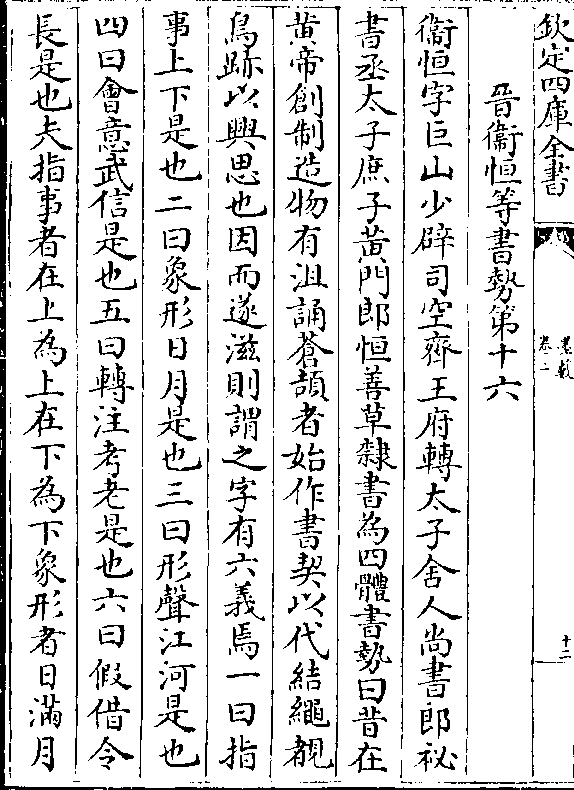 欽定四庫全書
墨藪
卷二
十二
晉衞恒等書勢第十六
衞恒字巨山少辟司空齊王府轉太子舍人尚書郎祕
書丞太子庶子黃門郎恒善草隸書為四體書勢曰昔在
黃帝創制造物有沮誦蒼頡者始作書契以代結繩覩
鳥跡以興思也因而遂滋則謂之字有六義焉一曰指
事上下是也二曰象形日月是也三曰形聲江河是也
四曰會意武信是也五曰轉注考老是也六曰假借令
長是也夫指事者在上為上在下為下象形者日滿月